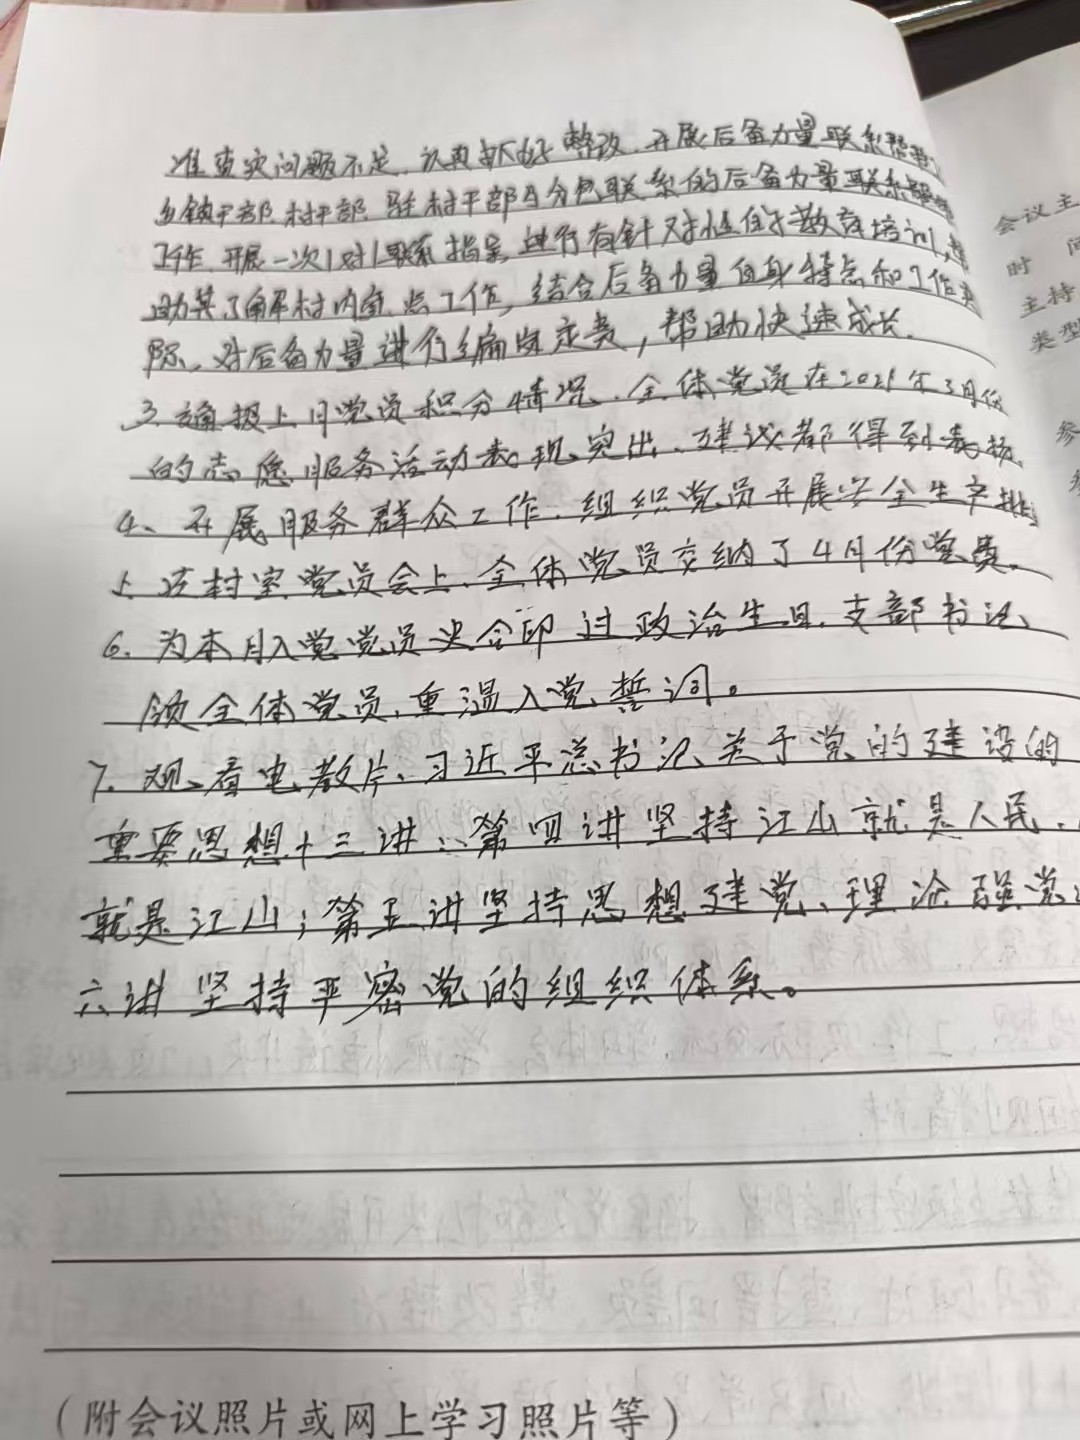 准查实问题不足，认真抓好整改，开展后备力量联系帮带
乡镇干部、村干部、驻村干部与分包联系的后备力量联系
工作，开展一次1对1联系指导，进行有针对性的教育培训，
助其了解村内重点工作，结合后备力量自身特点和工作实
际，对后备力量进行编岗定责，帮助快速成长。
3、通报上月党员积分情况，全体党员在2021年3月份
的志愿服务活动表现突出，建议都得到表扬。
4、开展服务群众工作，组织党员开展安全生产排
5、在村室党员会上，全体党员交纳了4月份党费。
6、为本月入党党员 过政治生日，支部书记
领全体党员，重温入党誓词。
7、观看电教片、习近平总书记关于党的建设的
重要思想十三讲：第四讲坚持江山就是人民、
就是江山；第五讲坚持思想建党、理论强党
六讲坚持严密党的组织体系。
（附会议照片或网上学习照片等）
会议主
时 间
主持
类型
参